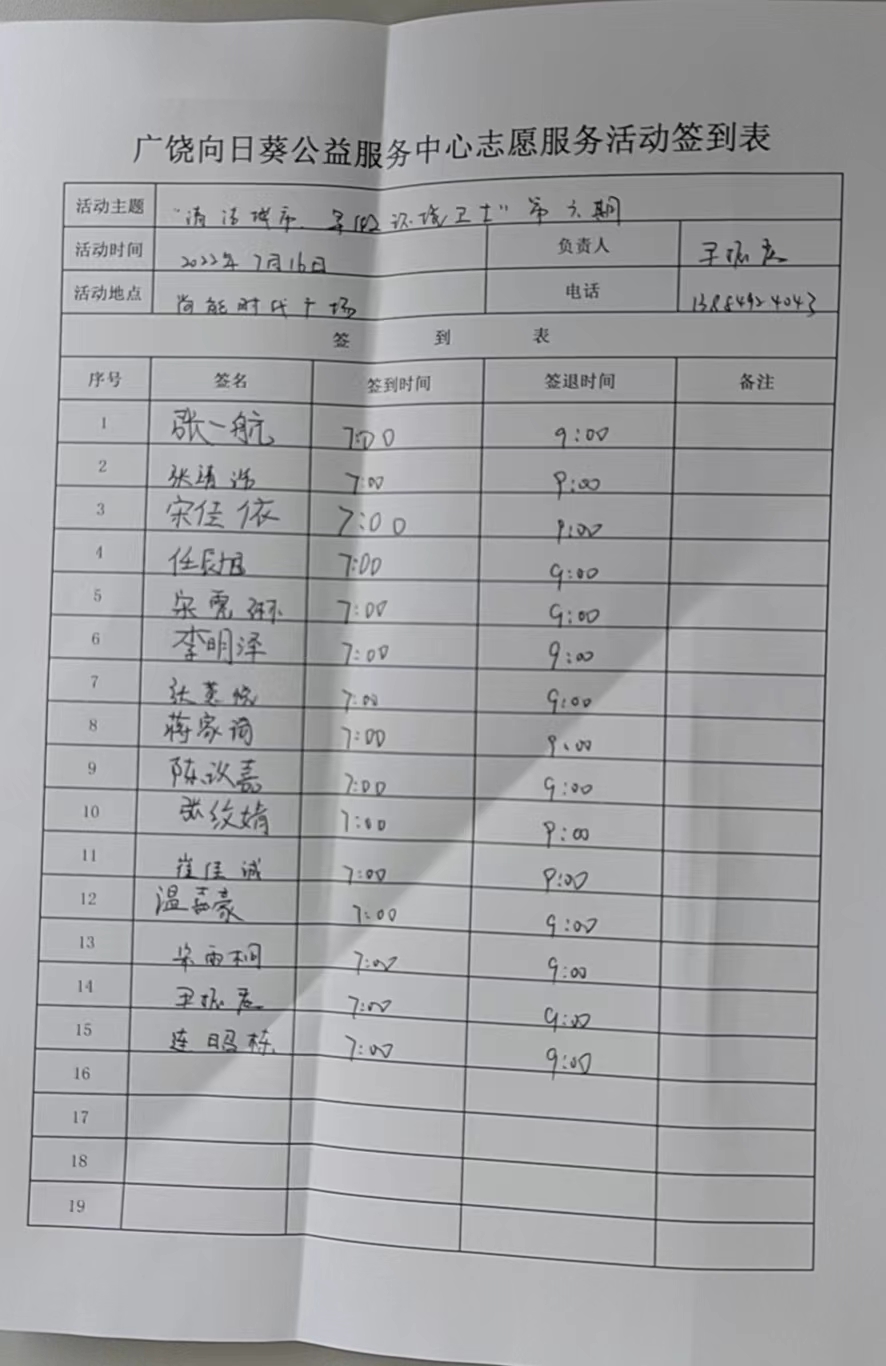 广饶向日葵公益服务中心志愿服务活动签到表
活动主题 "清洁城市、争做环境卫士"第六期
活动时间 2022年7月16日 负责人 王振忠
活动地点 尚能时代广场 电话 13884924043
签 到 表
序号 签名 签到时间 签退时间 备注
1 张一航 7:00 9:00
2 张靖浩 7:00 9:00
3 宋佳依 7:00 9:00
4 任 7:00 9:00
5 宋 7:00 9:00
6 李明泽 7:00 9:00
7 张 7:00 9:00
8 蒋家 7:00 9:00
9 陈 嘉 7:00 9:00
10 张纹婧 7:00 9:00
11 崔佳诚 7:00 9:00
12 温嘉豪 7:00 9:00
13 雨桐 7:00 9:00
14 王振 7:00 9:00
15 连 栋 7:00 9:00
16
17
18
19